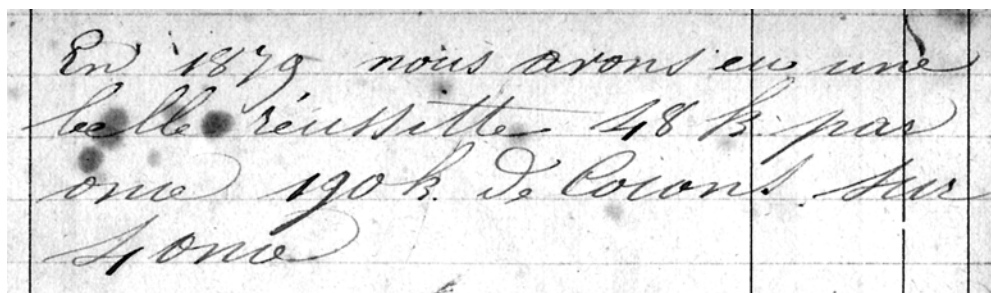 En 1879 nous avons eu une
belle réussitte 48 k par
once 190 k. de Cocons sur
4 once